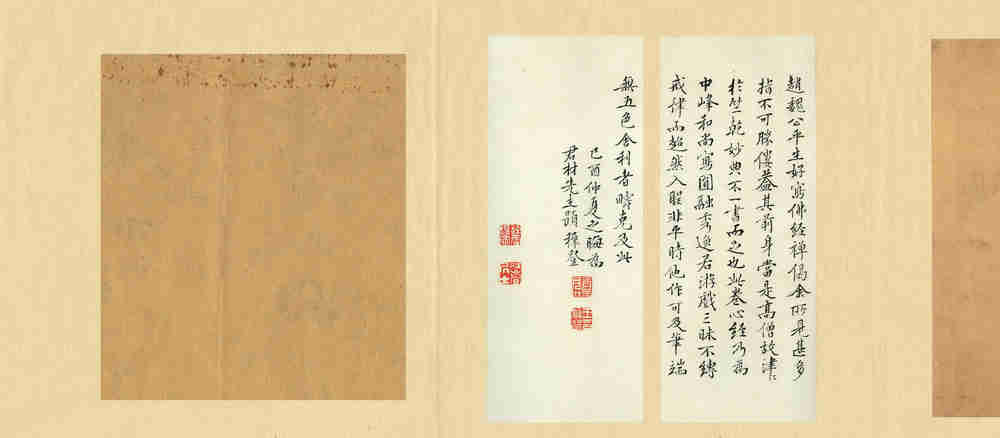 趙魏公平生好寫佛經禪偈余所見甚多
指不可勝僂蓋其前身當是高僧故津〻
於竺乾妙典不一書而足也此卷心經乃為
中峰和尚寫圓融秀逸若游戲三昧不縛
戒律而超然入聖非平時他作可及筆端
無五色舍利者曷克及此
己酉仲夏之晦為
君材先生題